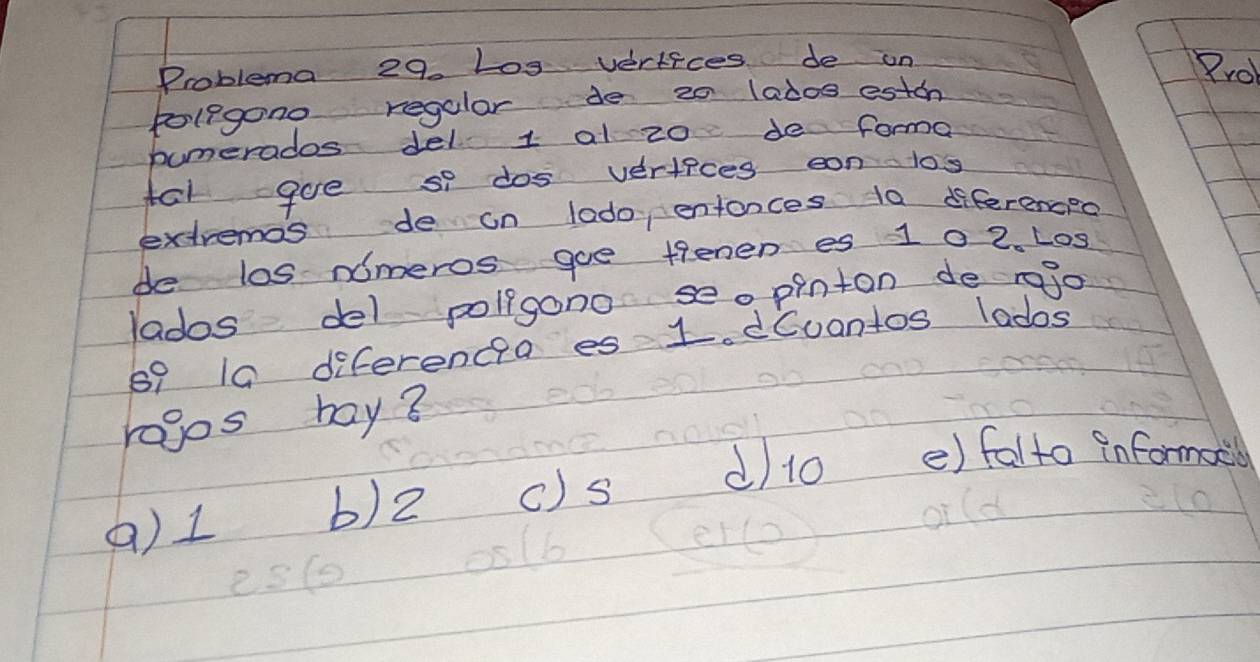 Problema 29. Los vértices de un
polígono regular de 20 lados están
numerados del 1 al 20 de forma
tal que si dos vértices son los
extremos de un lado, entonces la diferencia
de los números que tienen es 1 o 2. Los
lados del polígono se pintan de rojo
si la diferencia es 1. ¿Cuantos lados
rojos hay?
a) 1 b) 2 c) 5 d) 10 e) falta informació
Prol